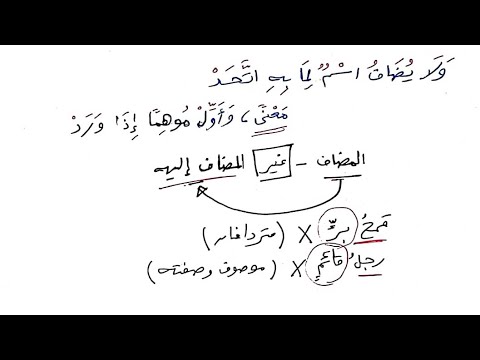 وَلَا يُضَافُ اسْمٌ لِمَا بِهِ اتَّحَدْ
مَعْنًى، وَأَوِّلْ مُوهِمًا إِذَا وَرَدْ
المضاف - غير المضاف إليه
قمحُ برٍّ X (مترادفان)
رجلُ قائمٍ X (موصوف وصفته)